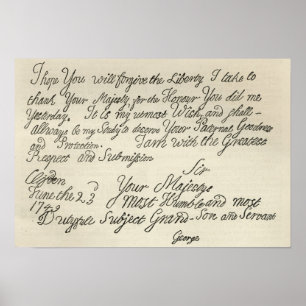 I hope You will forgive the Liberty I take to
thank Your Majesty for the Honour You did me
Yesterday. It is my utmost Wish and shall
allways be my Study to deserve Your Paternal Goodness
and Protection. I am with the Greatest
Respect and Submission
Sir
June the 23
1749
Your Majestys
Most Humble and most
Dutyfull Subject Grand-Son and Servant
George